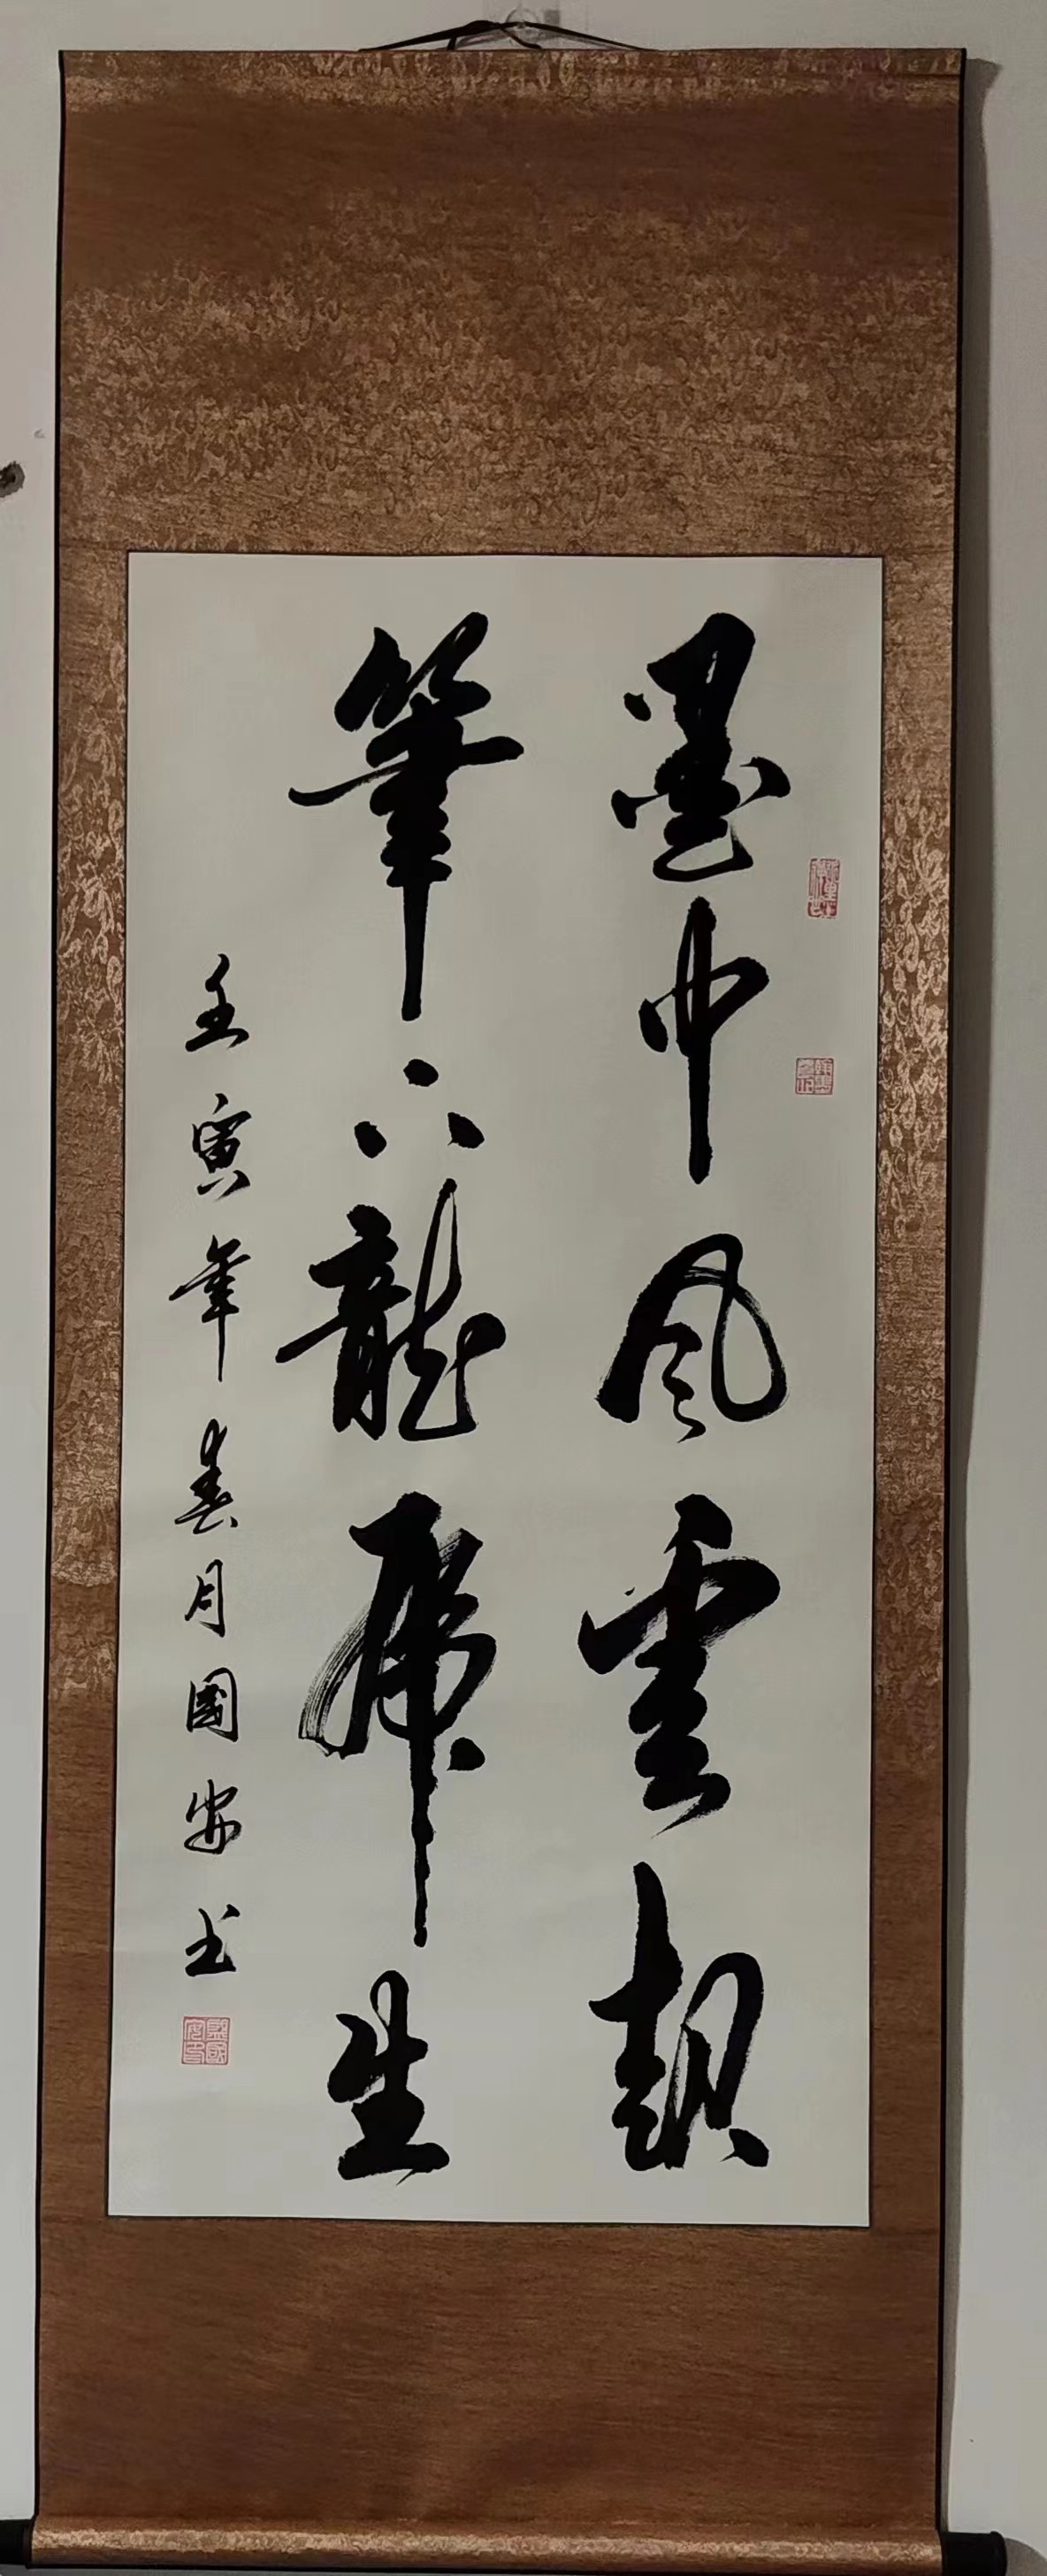 墨中風雲起
筆下龍虎生
壬寅年春月國安书